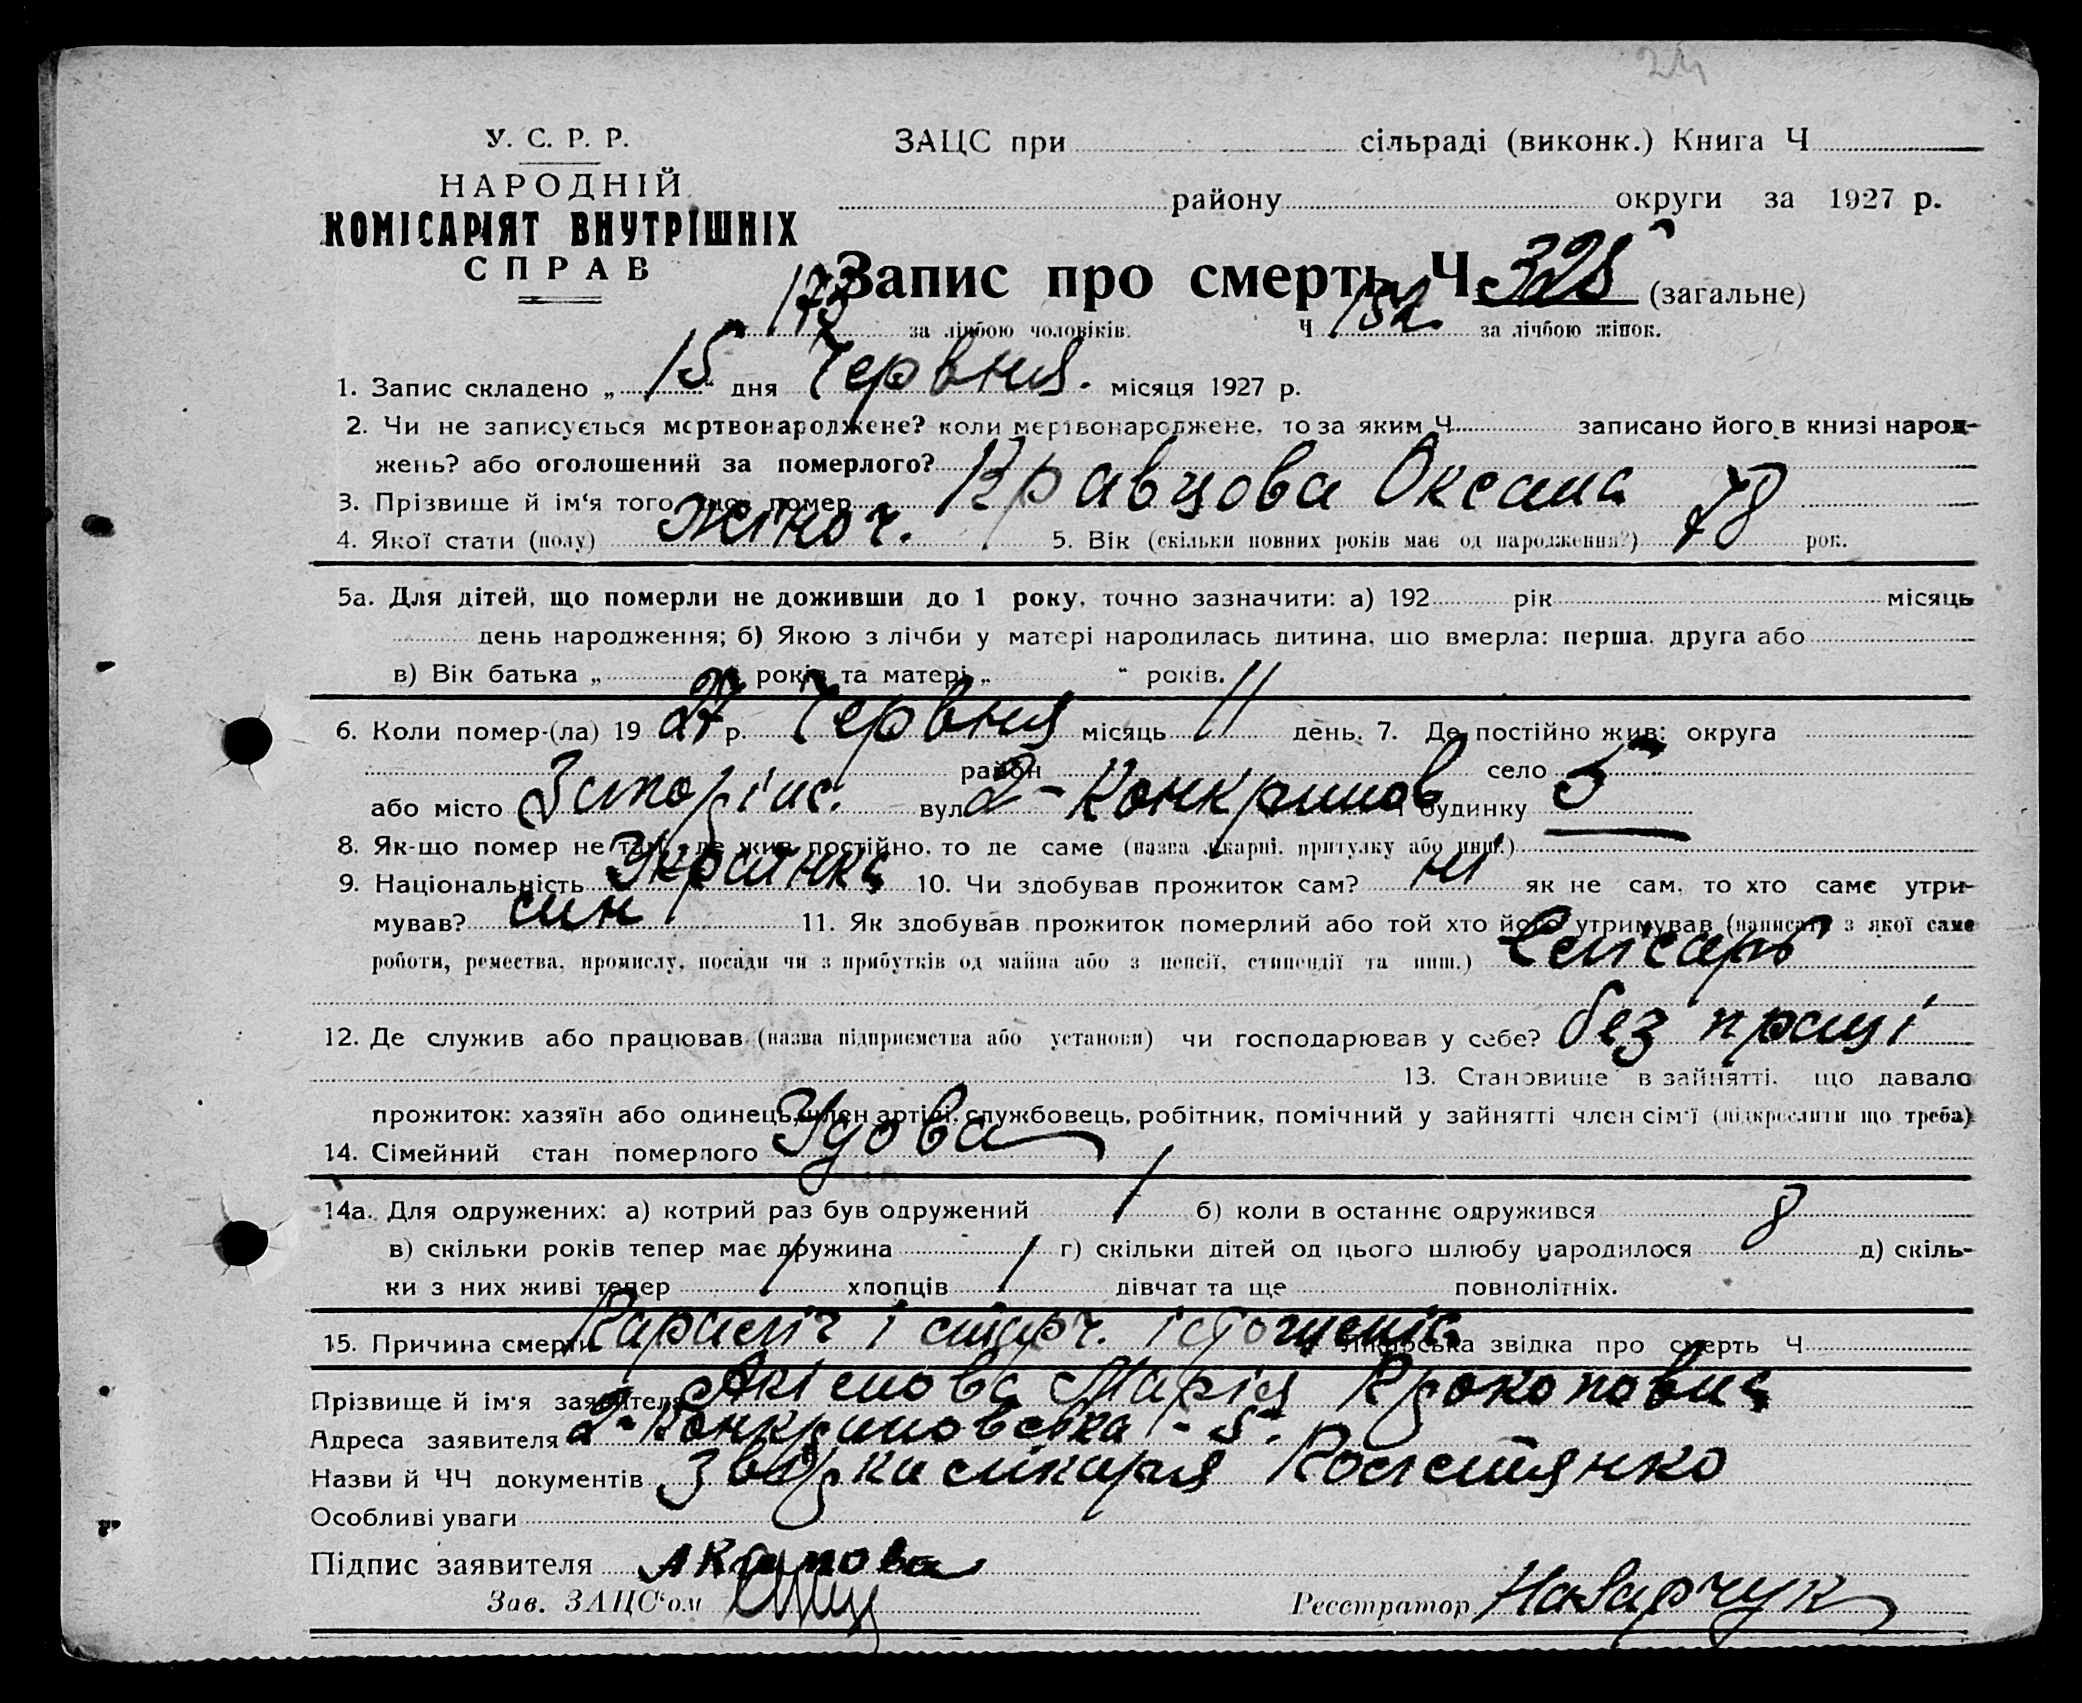 24
У. С. Р. Р.
НАРОДНІЙ
КОМІСАРІЯТ ВНУТРІШНІХ
СПРАВ
ЗАЦС при сільраді (виконк.) Книга Ч
району округи за 1927 р.
Запис про смерть Ч 325 (загальне)
173 за лічбою чоловіків. Ч 152 за лічбою жінок.
1. Запис складено „ 15 “ дня Червня. місяця 1927 р.
2. Чи не записується мертвонароджене? коли мертвонароджене, то за яким Ч записано його в книзі народ-
жень? або оголошений за померлого?
3. Прізвище й ім'я того, що помер Кравцова Оксана
4. Якої стати (полу) жіноч. 5. Вік (скільки повних років має од народження?) 78 рок.
5а. Для дітей, що померли не доживши до 1 року, точно зазначити: а) 192 рік місяць
день народження; б) Якою з лічби у матері народилась дитина, що вмерла: перша, друга або
в) Вік батька „ “ років та матері „ “ років.
6. Коли помер-(ла) 19 27 р. Червня місяць 11 день. 7. Де постійно жив: округа
район село
або місто Запоріж. вул. 2- Конкринов Ч будинку 5
8. Як-що помер не там, де жив постійно, то де саме (назва лікарні, притулку або инш.)
9. Національність Українка 10. Чи здобував прожиток сам? ні як не сам, то хто саме утри-
мував? син 11. Як здобував прожиток померлий або той хто його утримував (написати з якої саме
роботи, ремества, промислу, посади чи з прибутків од майна або з пенсії, стипендії та инш.) слюсарь
12. Де служив або працював (назва підприємства або установи) чи господарював у себе? без праці
13. Становище в зайнятті, що давало
прожиток: хазяїн або одинець, член артілі, службовець, робітник, помічний у зайнятті член сім'ї (підкреслити що треба)
14. Сімейний стан померлого Удова
14а. Для одружених: а) котрий раз був одружений 1 б) коли в останнє одружився
в) скільки років тепер має дружина г) скільки дітей од цього шлюбу народилося 8 д) скіль-
ки з них живі тепер 1 хлопців 1 дівчат та ще повнолітніх.
15. Причина смерти Лікарська звідка про смерть Ч
Прізвище й ім'я заявителя Акімова Марія Прокоповна
Адреса заявителя 2-Конкриновська - 5.
Назви й ЧЧ документів Звідка лікаря
Особливі уваги
Підпис заявителя Акимова
Зав. ЗАЦС'ом Реєстратор Назарчук